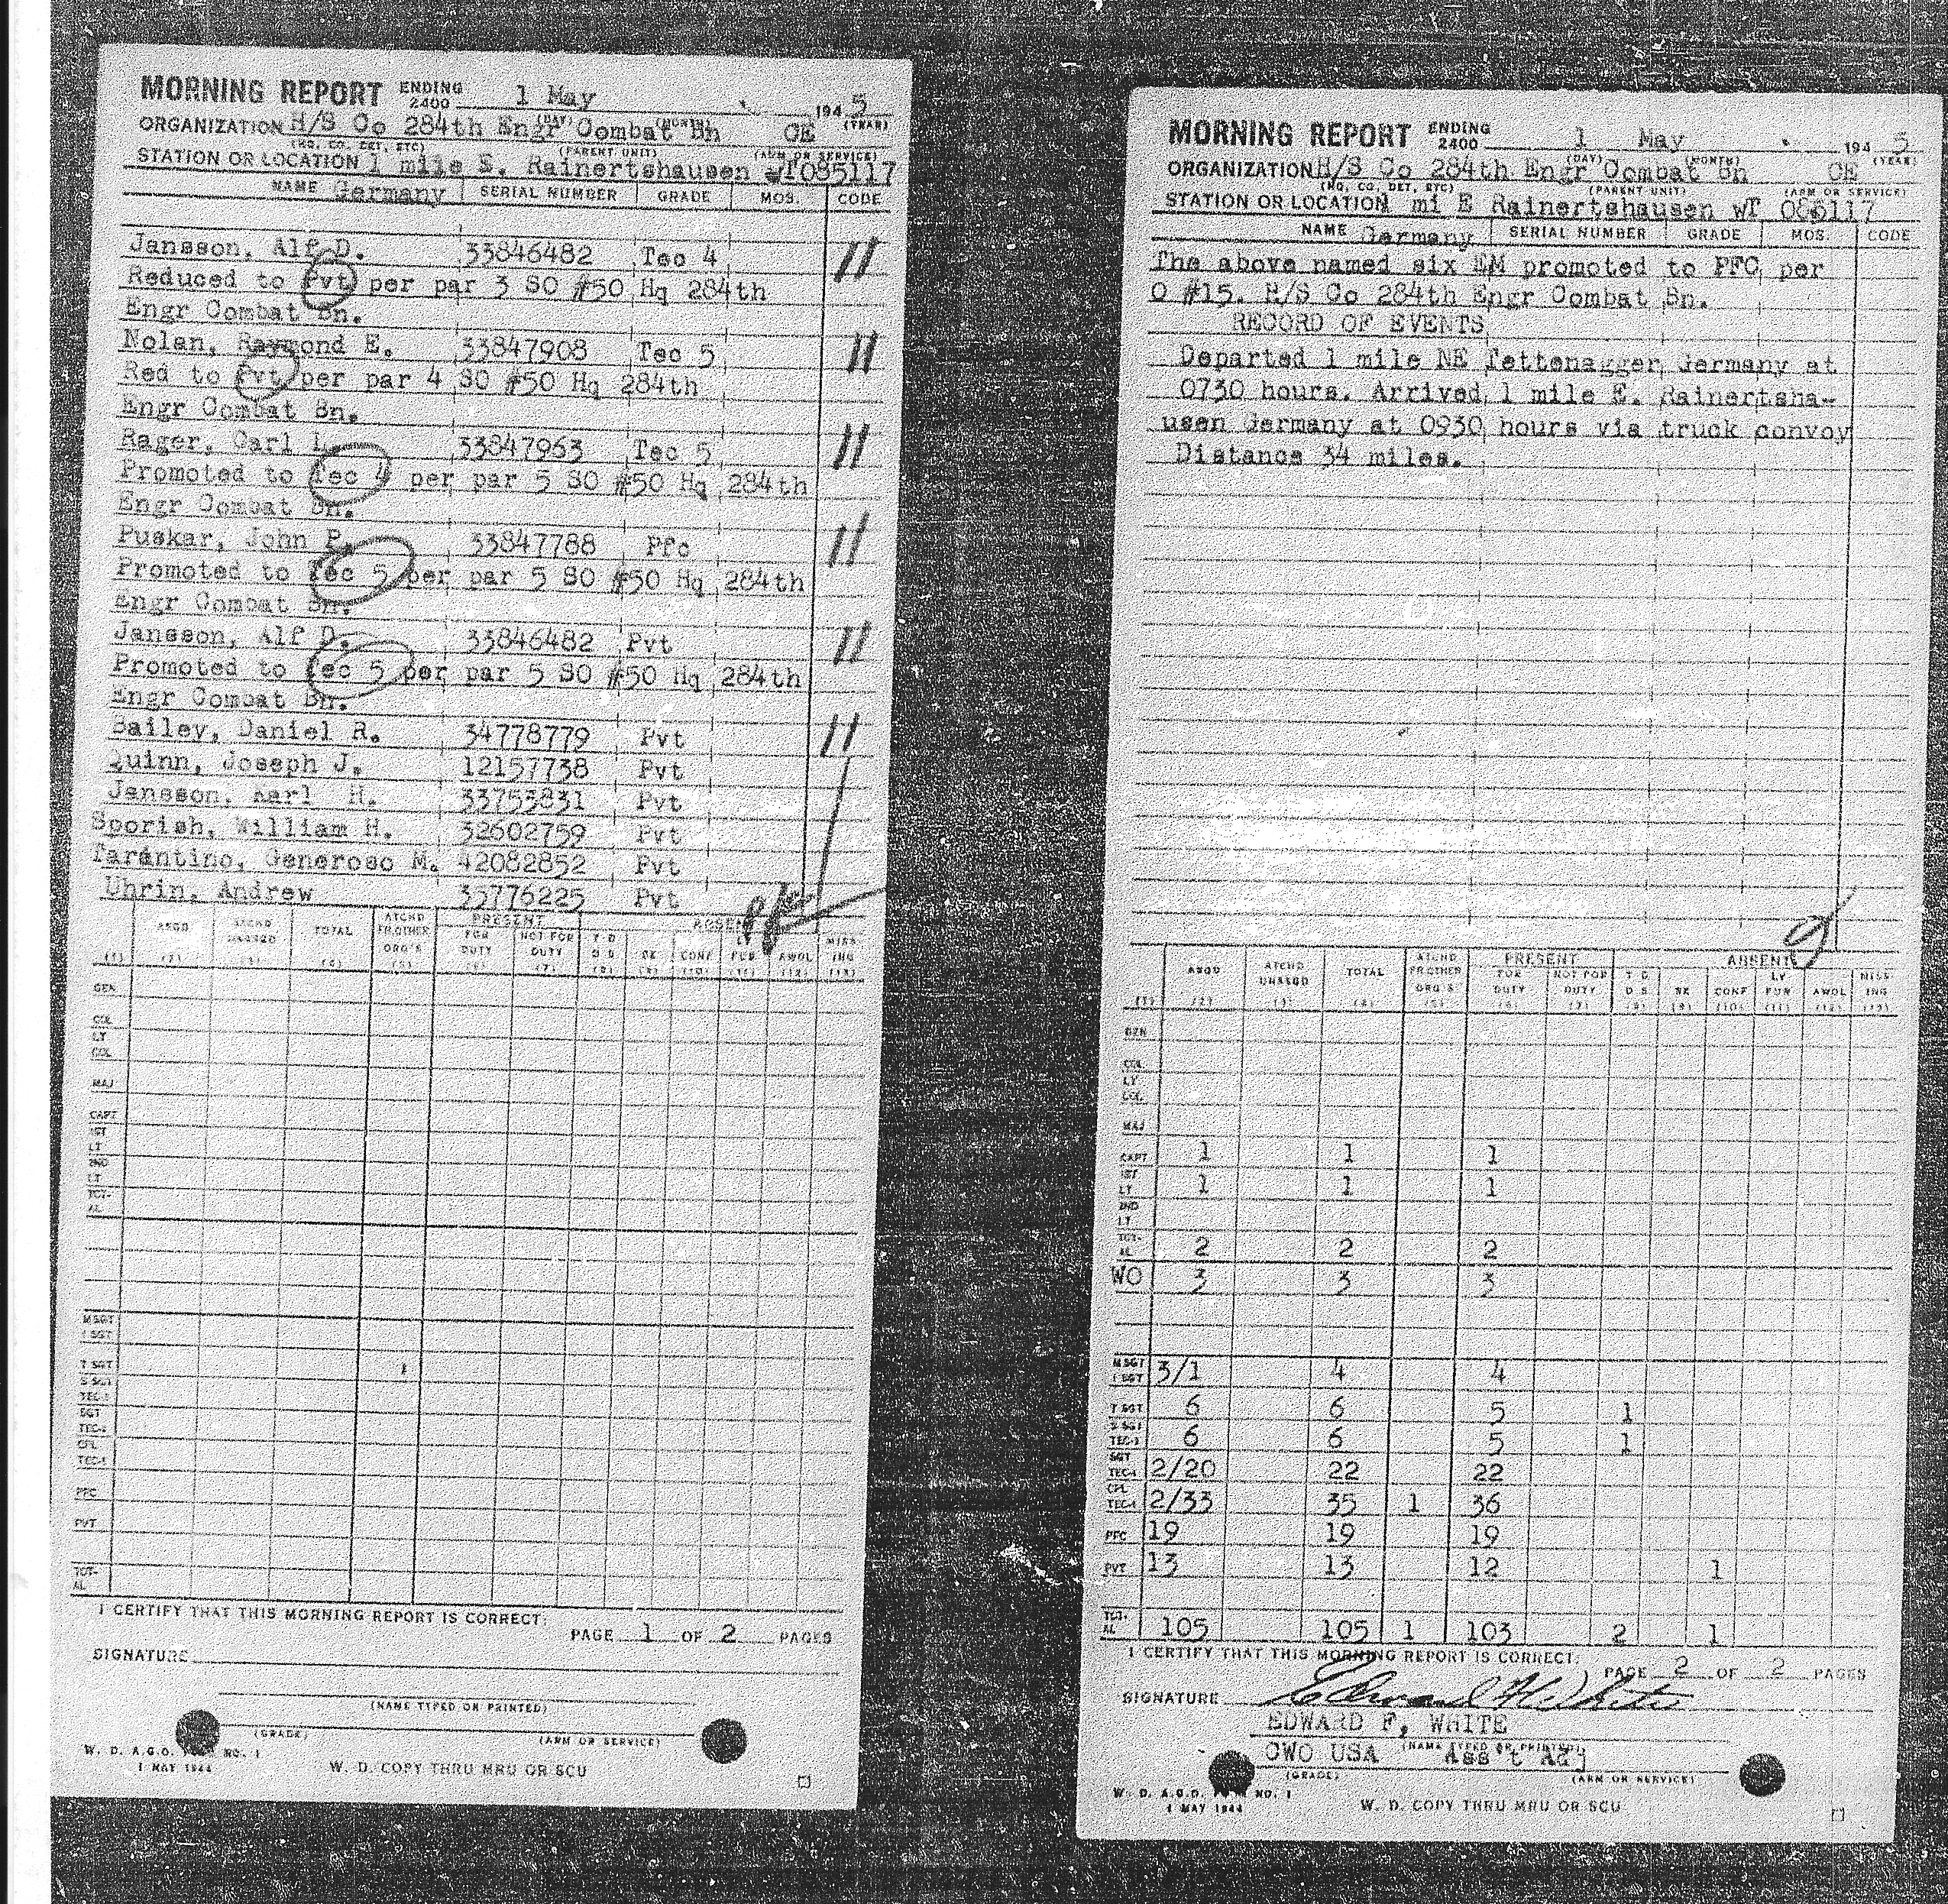 MORNING REPORT ENDING 2400 1 May 1945
(DAY) (MONTH) (YEAR)
ORGANIZATION H/S Co 284th Engr Combat Bn CE
(HQ, CO, DET, ETC) (PARENT UNIT) (ARM OR SERVICE)
STATION OR LOCATION 1 mile E. Rainertshausen wT085117
NAME Germany SERIAL NUMBER GRADE MOS. CODE
Jansson, Alf D. 33846482 Tec 4 11
Reduced to Pvt per par 3 SO #50 Hq 284th
Engr Combat Bn.
Nolan, Raymond E. 33847908 Tec 5 11
Red to Pvt per par 4 SO #50 Hq 284th
Engr Combat Bn.
Rager, Carl L. 33847963 Tec 5 11
Promoted to Tec 4 per par 5 SO #50 Hq 284th
Engr Combat Bn.
Puskar, John P. 33847788 Pfc 11
Promoted to Tec 5 per par 5 SO #50 Hq 284th
Engr Combat Bn.
Jansson, Alf D. 33846482 Pvt 11
Promoted to Tec 5 per par 5 SO #50 Hq 284th
Engr Combat Bn.
Bailey, Daniel R. 34778779 Pvt 11
Quinn, Joseph J. 12157738 Pvt
Jansson, Karl H. 33753831 Pvt
Sporish, William H. 32602759 Pvt
Tarantino, Generoso M. 42082852 Pvt
Uhrin, Andrew 35776225 Pvt
Pfc
PRESENT ABSENT
ASGD ATCHD UNASGD TOTAL ATCHD FR OTHER ORG'S FOR DUTY NOT FOR DUTY T D D S SK CONF LV FUR AWOL MISS ING
(1) (2) (3) (4) (5) (6) (7) (8) (9) (10) (11) (12) (13)
GEN
COL
LT COL
MAJ
CAPT
1ST LT
2ND LT
TOT-AL
MSGT
1 SGT
T SGT
S SGT
TEC-3
SGT
TEC-4
CPL
TEC-5
PFC
PVT
TOT-AL
I CERTIFY THAT THIS MORNING REPORT IS CORRECT:
PAGE 1 OF 2 PAGES
SIGNATURE
(NAME TYPED OR PRINTED)
(GRADE) (ARM OR SERVICE)
W. D. A.G.O. FORM NO. 1
1 MAY 1944 W. D. COPY THRU MRU OR SCU
MORNING REPORT ENDING 2400 1 May 1945
(DAY) (MONTH) (YEAR)
ORGANIZATION H/S Co 284th Engr Combat Bn CE
(HQ, CO, DET, ETC) (PARENT UNIT) (ARM OR SERVICE)
STATION OR LOCATION 1 mi E Rainertshausen wT 085117
NAME Germany SERIAL NUMBER GRADE MOS. CODE
The above named six EM promoted to PFC per
O #15. H/S Co 284th Engr Combat Bn.
RECORD OF EVENTS
Departed 1 mile NE Tettenagger Germany at
0730 hours. Arrived 1 mile E. Rainertsha-
usen Germany at 0930 hours via truck convoy
Distance 34 miles.
PRESENT ABSENT
ASGD ATCHD UNASGD TOTAL ATCHD FR OTHER ORG'S FOR DUTY NOT FOR DUTY T D D S SK CONF LV FUR AWOL MISS ING
(1) (2) (3) (4) (5) (6) (7) (8) (9) (10) (11) (12) (13)
GEN
COL
LT COL
MAJ
CAPT 1 1 1
1ST LT 1 1 1
2ND LT
TOT-AL 2 2 2
WO 3 3 3
MSGT 1 SGT 3/1 4 4
T SGT 6 6 5 1
S SGT TEC-3 6 6 5 1
SGT TEC-4 2/20 22 22
CPL TEC-5 2/33 35 1 36
PFC 19 19 19
PVT 13 13 12 1
TOT-AL 105 105 1 103 2 1
I CERTIFY THAT THIS MORNING REPORT IS CORRECT:
PAGE 2 OF 2 PAGES
SIGNATURE Edward F White
EDWARD F. WHITE
(NAME TYPED OR PRINTED)
CWO USA Ass't Adj
(GRADE) (ARM OR SERVICE)
W. D. A.G.O. FORM NO. 1
1 MAY 1944 W. D. COPY THRU MRU OR SCU